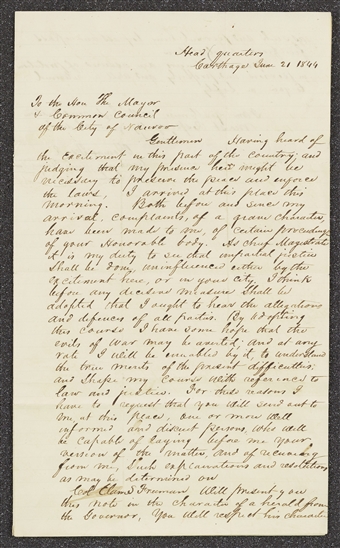 Head quarters
Carthage June 21 1844
To the Hon The Mayor
& Common Council
of the City of Nauvoo
Gentlemen Having heard of
the excitement in this part of the country, and
judging that my presence here might be
necessary to preserve the peace and enforce
the laws, I arrived at this place this
morning. Both before and since my
arrival, complaints, of a grave character,
have been made to me, of certain proceedings
of your Honorable body. As chief Magistrate
it is my duty to see that impartial justice
shall be done, uninfluenced either by the
excitement here, or in your city. I think
before any decisive measure shall be
adopted that I ought to hear the allegations
and defences of all parties. By adopting
this course I have some hope that the
evils of war may be averted, and at any
rate I will be enabled by it to understand
the true merits of the present difficulties,
and shape my course with reference to
law and justice. For these reasons I
have to request that you will send out to
me, at this place, one or more well
informed and discreet persons, who will
be capable of laying before me your
version of the matter, and of receiving
from me, such explanations and resolutions
as may be determined on
Col Freeman Will present you
this note in the character of a herald from
the Governor, You will respect his character